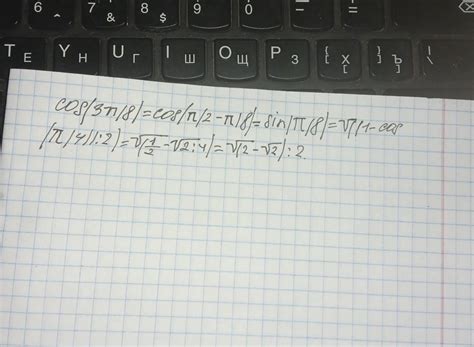 6 7 8 9 0 - =
& $
T Е Y Н U Г I Ш O Щ P З { [ Х } ] Ъ | \
cos(3π/8)=cos(π/2-π/8)=sin(π/8)=√((1-cos
(π/4)):2)=√(1/2-√2:4)=√(2-√2):2